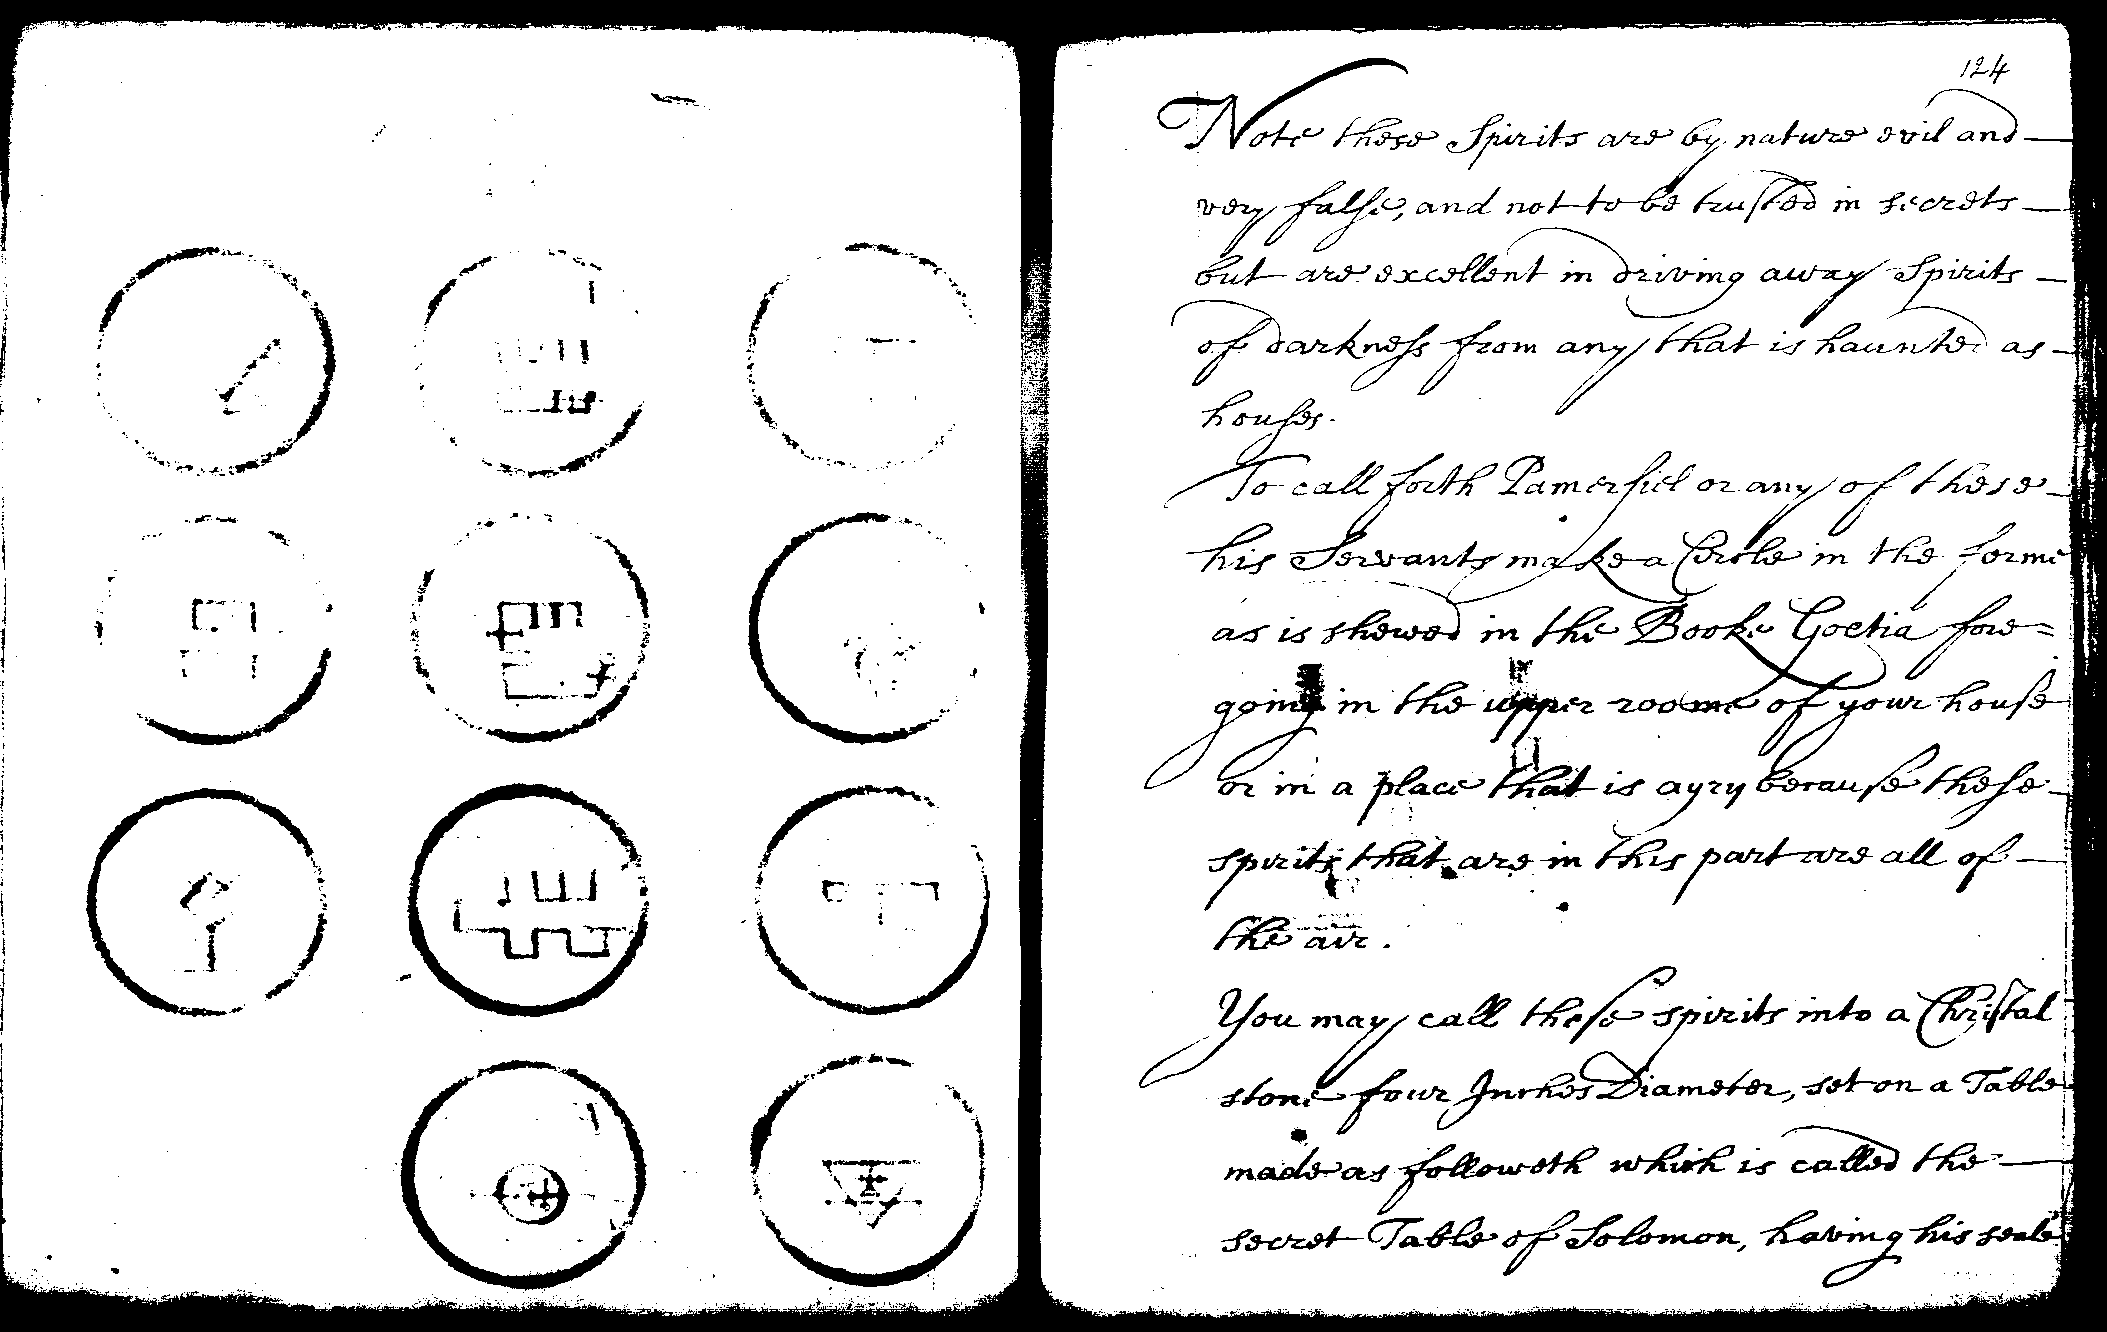 124
Note these Spirits are by nature evil and
very false, and not to be trusted in secrets
but are excellent in driving away Spirits
of darkness from any that is haunted as
houses.
To call forth Pamersiel or any of these
his Servants make a Circle in the forme
as is shewed in the Booke Goetia fore=
going in the upper roome of your house
or in a place that is ayry because these
spirits that are in this part are all of
the air.
You may call these spirits into a Christal
stone four Inches Diameter, set on a Table
made as followeth which is called the
secret Table of Solomon, having his seale